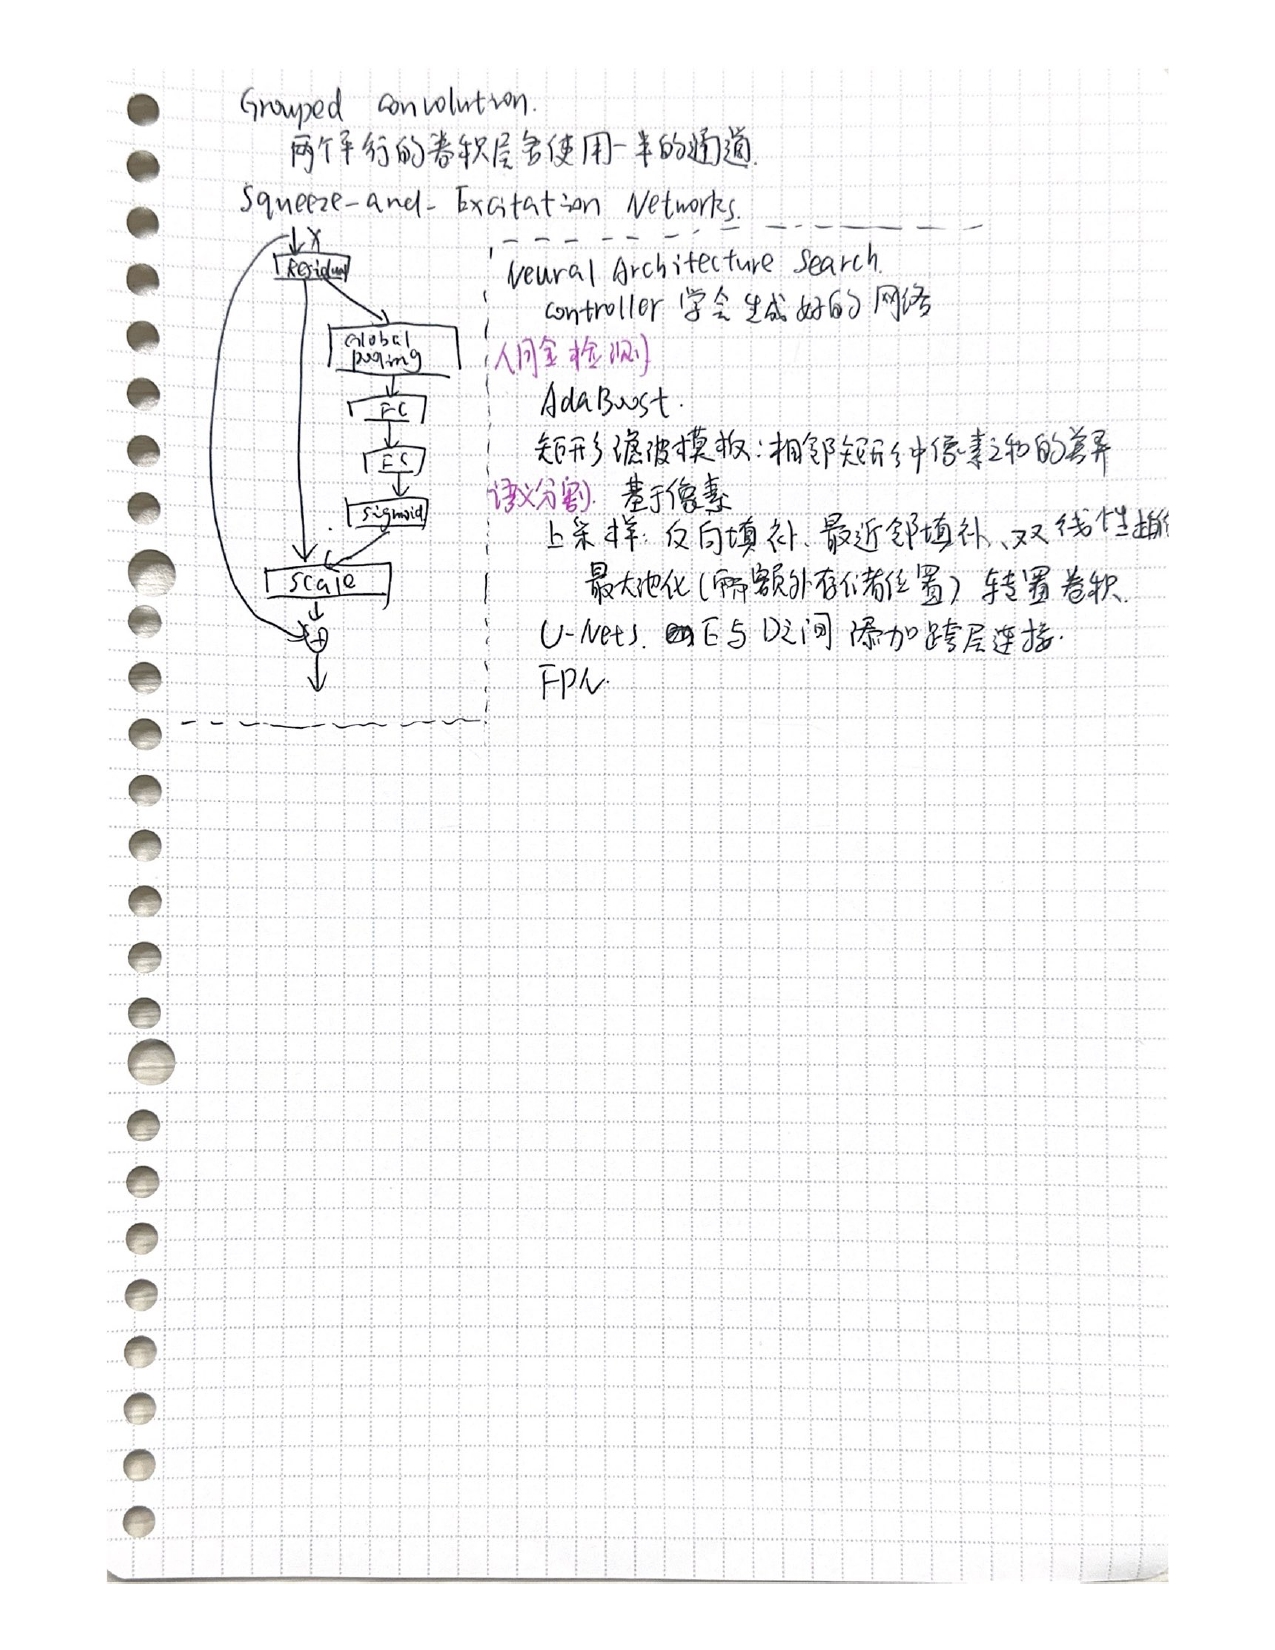 Grouped convolution.
两个平行的卷积层各使用一半的通道.
Squeeze-and-Excitation Networks.
X
Residual
Global
pooling
FC
FC
Sigmoid
Scale
Neural Architecture Search.
controller 学会生成好的网络
人同金检测
AdaBoost.
矩形滤波模板: 相邻矩形中像素之和的差异
语义分割. 基于像素
上采样: 反向填补、最近邻填补、双线性
最大池化(需额外存储位置) 转置卷积.
U-Nets. E与D之间添加跨层连接.
FPN.